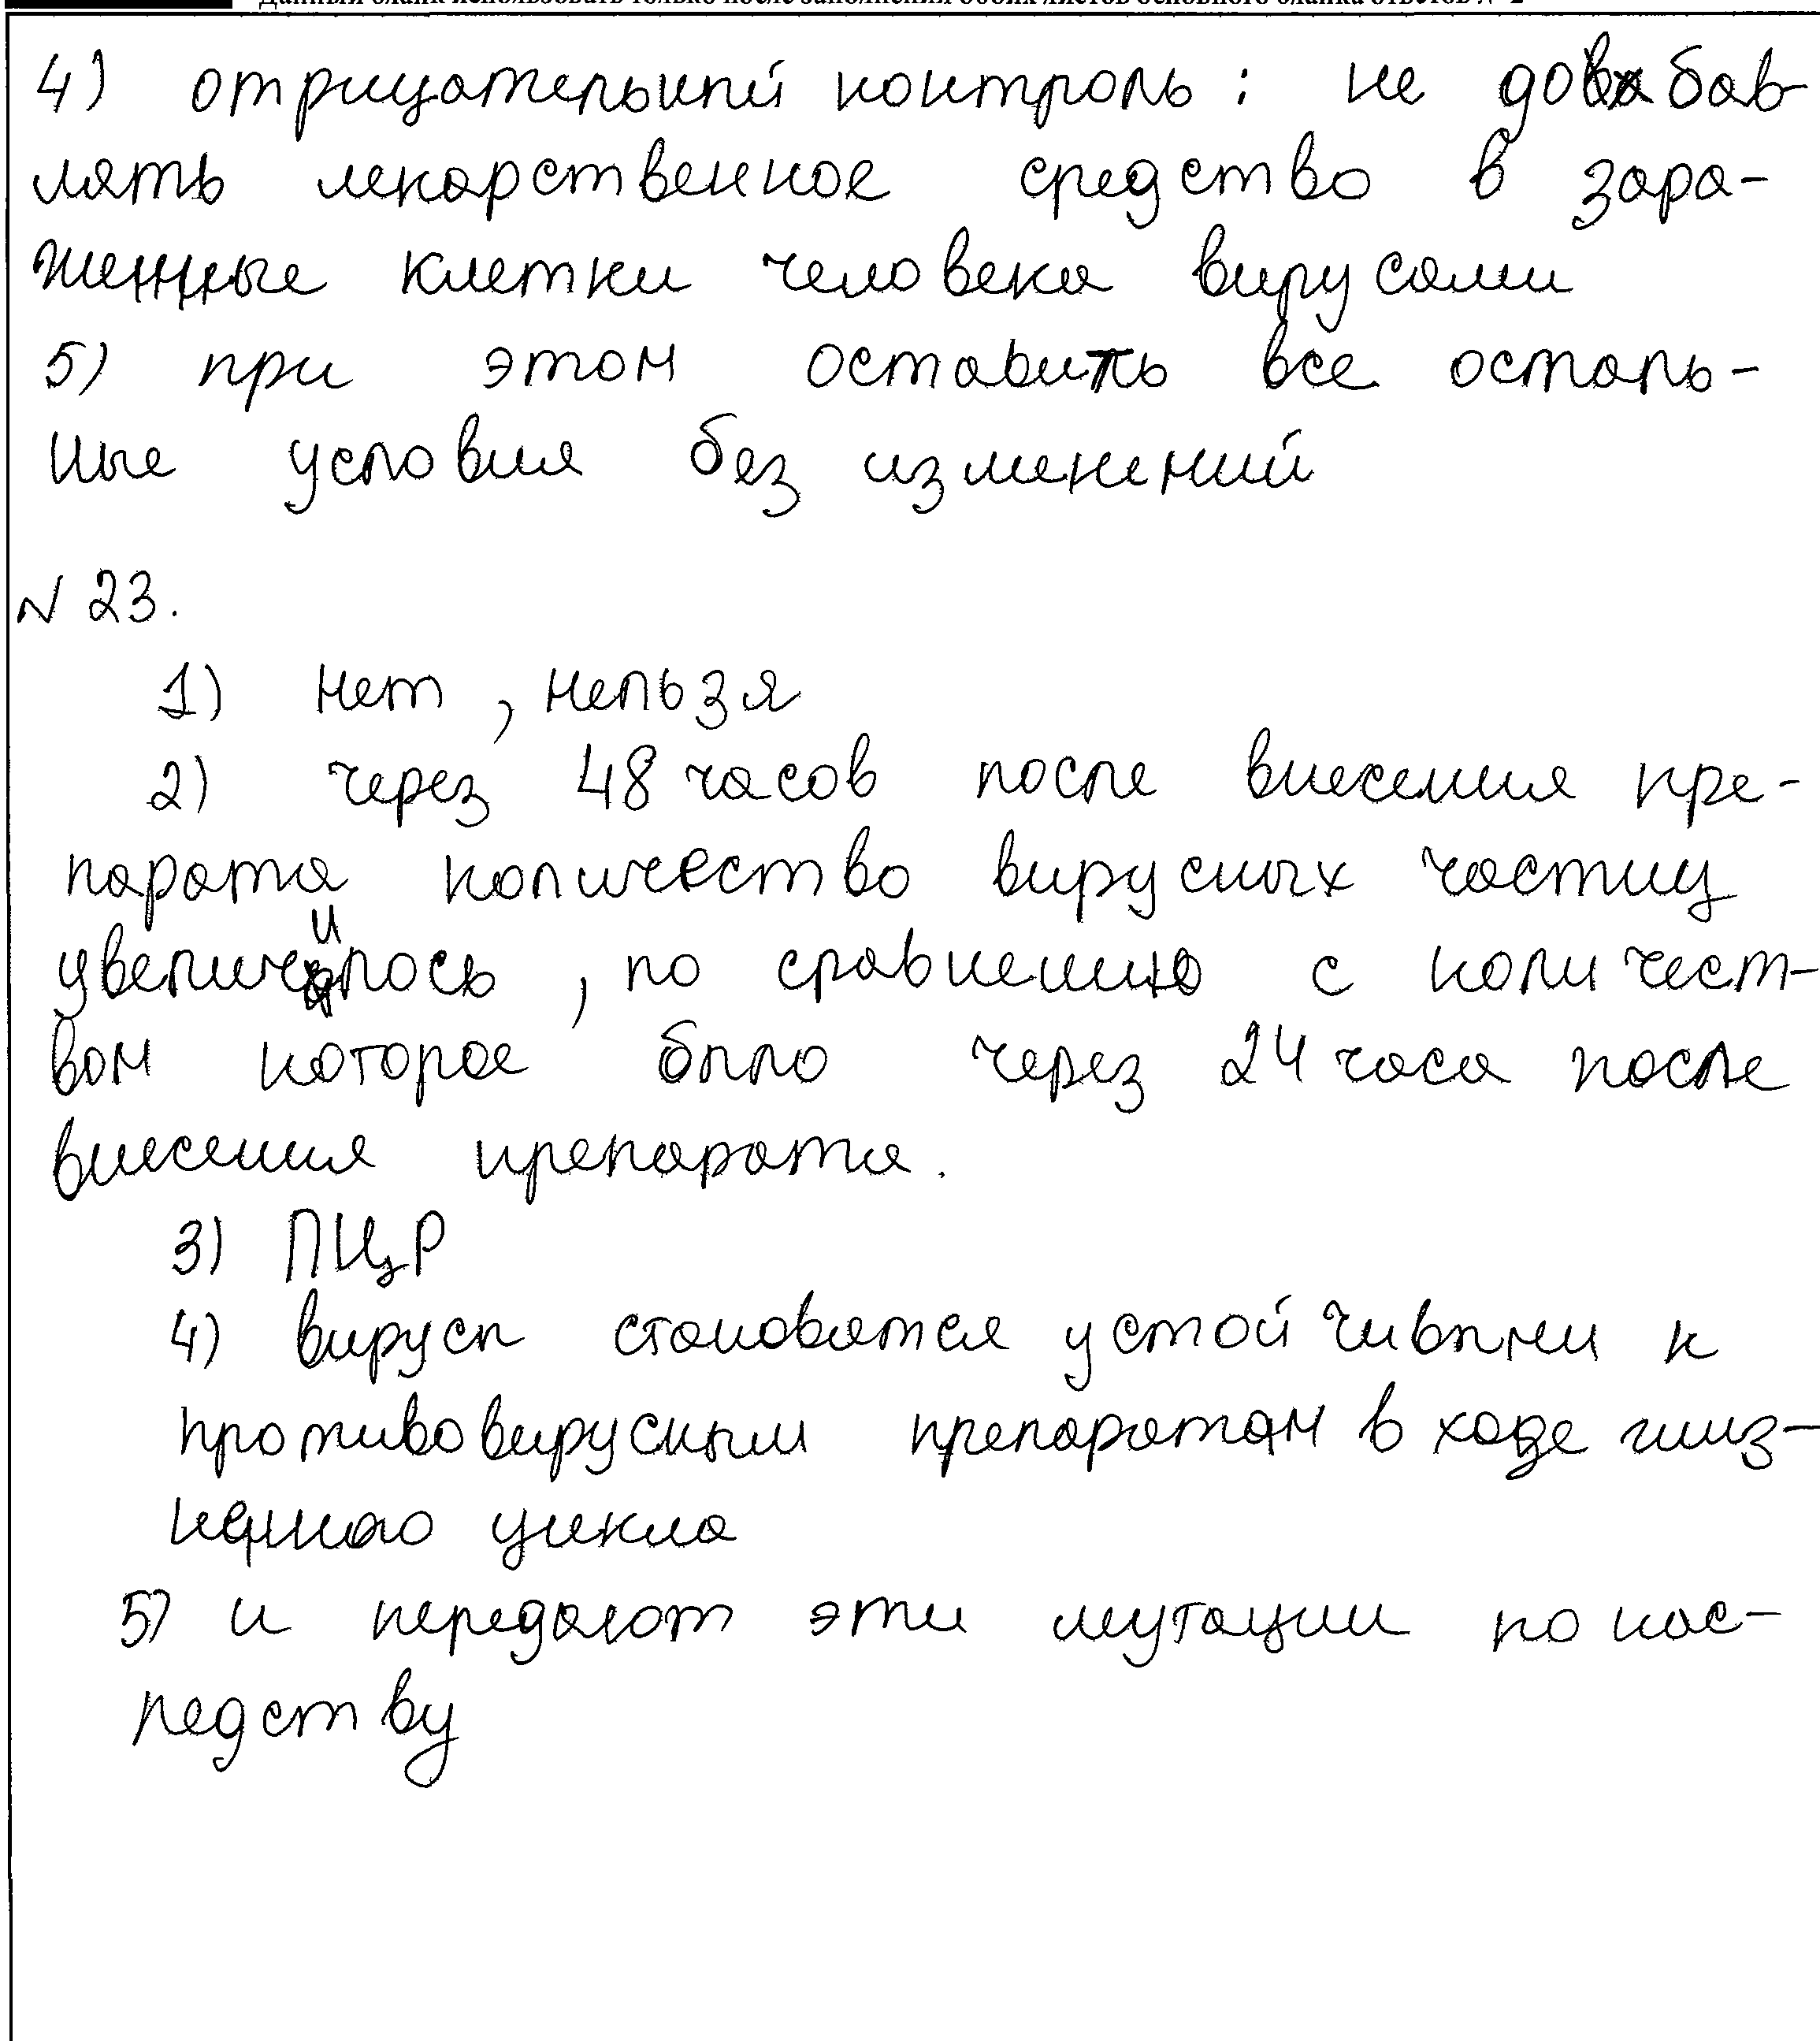 Данный бланк использовать только после заполнения обоих листов основного бланка ответов № 2
4) отрицательный контроль: не добав-
лять лекарственное средство в зара-
женные клетки человека вирусами
5) при этом оставить все осталь-
ные условия без изменений
№ 23.
1) нет, нельзя
2) через 48 часов после внесения пре-
парата количество вирусных частиц
увеличилось, по сравнению с количест-
вом которое было через 24 часа после
внесения препарата.
3) ПЦР
4) вирусы становятся устойчивыми к
противовирусным препаратам в ходе жиз-
ненного цикла
5) и передают эти мутации по нас-
ледству